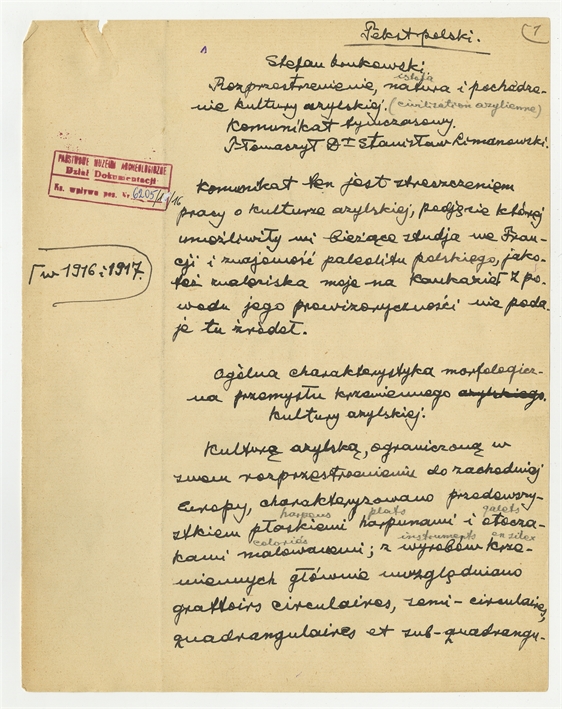 Tekst polski.
1
Stefan Krukowski.
istota
Rozprzestrzenienie, natura i pochodze-
nie kultury azylskiej. (civilization azylienne)
Komunikat tymczasowy.
Tłomaczył Dr Stanisław Limanowski.
PAŃSTWOWE MUZEUM ARCHEOLOGICZNE
Dział Dokumentacji
Ks. wpływu poz. Nr. 6205/
Komunikat ten jest streszczeniem
pracy o kulturze azylskiej, podjęcie której
umożliwiły mi bieżące studja we Fran-
cji i znajomość paleolitu polskiego, jako-
też znaleziska moje na Kaukazie Z po-
⌈w 1916 i 1917.
wodu jego prowizoryczności nie poda-
ję tu źródeł.
Ogólna charakterystyka morfologicz-
na przemysłu krzemiennego azylskiego.
kultury azylskiej.
Kulturę azylską, ograniczoną w
swem rozprzestrzenieniu do zachodniej
Europy, charakteryzowano przedewszy-
harpons plats galets
stkiem płaskiemi harpunami i otocza-
coloriés instruments en silex
kami malowanemi; z wyrobów krze-
miennych głównie uwzględniano
grattoirs circulaires, semi-circulaires,
quadrangulaires et sub-quadrangu-